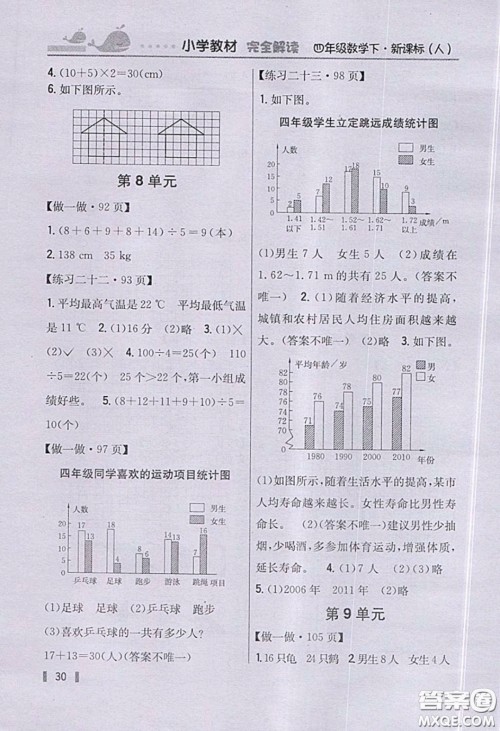 小学教材 完全解读 四年级数学下·新课标(人)
4. (10+5)×2=30(cm)
6. 如下图所示。
第 8 单元
【做一做·92 页】
1. (8+6+9+8+14)÷5=9(本)
2. 138 cm  35 kg
【练习二十二·93 页】
1. 平均最高气温是 22 ℃  平均最低气
温是 11 ℃  2. (1)16分  (2)略  3. (1)×
(2)✓  (3)×  4. 100÷4=25(个)
110÷5=22(个)  25>22,第一小组成
绩好些。  5. (8+12+11+9+10)÷5=
10(个)
【做一做·97 页】
四年级同学喜欢的运动项目统计图
人数
男生
女生
30
25
20
15
10
5
0
17 13 18 4 8 6 13 13 5 16
乒乓球 足球 跑步 游泳 跳绳 项目
(1)足球  足球  (2)乒乓球  跑步
(3)喜欢乒乓球的一共有多少人?
17+13=30(人)(答案不唯一)
30
【练习二十三·98 页】
1. 如下图。
四年级学生立定跳远成绩统计图
人数
男生
女生
20
15
10
5
0
1.41以下 1.42~1.51 1.52~1.61 1.62~1.71 1.72以上 成绩/m
(1)男生 7 人  女生 5 人  (2)成绩在
1.62~1.71 m 的共有 25 人。(答案不
唯一)  2. (1)随着经济水平的提高,
城镇和农村居民人均住房面积越来越
大。(答案不唯一)  (2)略
3. 如下图。
平均年龄/岁
男
女
82
80
78
76
74
72
70
0
1980 1990 2000 2010 年份
(1)如图所示,随着生活水平的提高,某市
人均寿命越来越长。女性寿命比男性寿
命长。  (2)(答案不唯一)建议男性少抽
烟,少喝酒,多参加体育运动,增强体质,
延长寿命。  4. (1)(答案不唯一)略
5. (1)2006 年  2011 年  (2)略
第 9 单元
【做一做·105 页】
1. 16 只龟  24 只鹤  2. 男生 8 人  女生 4 人
答案圈
MXQE.COM